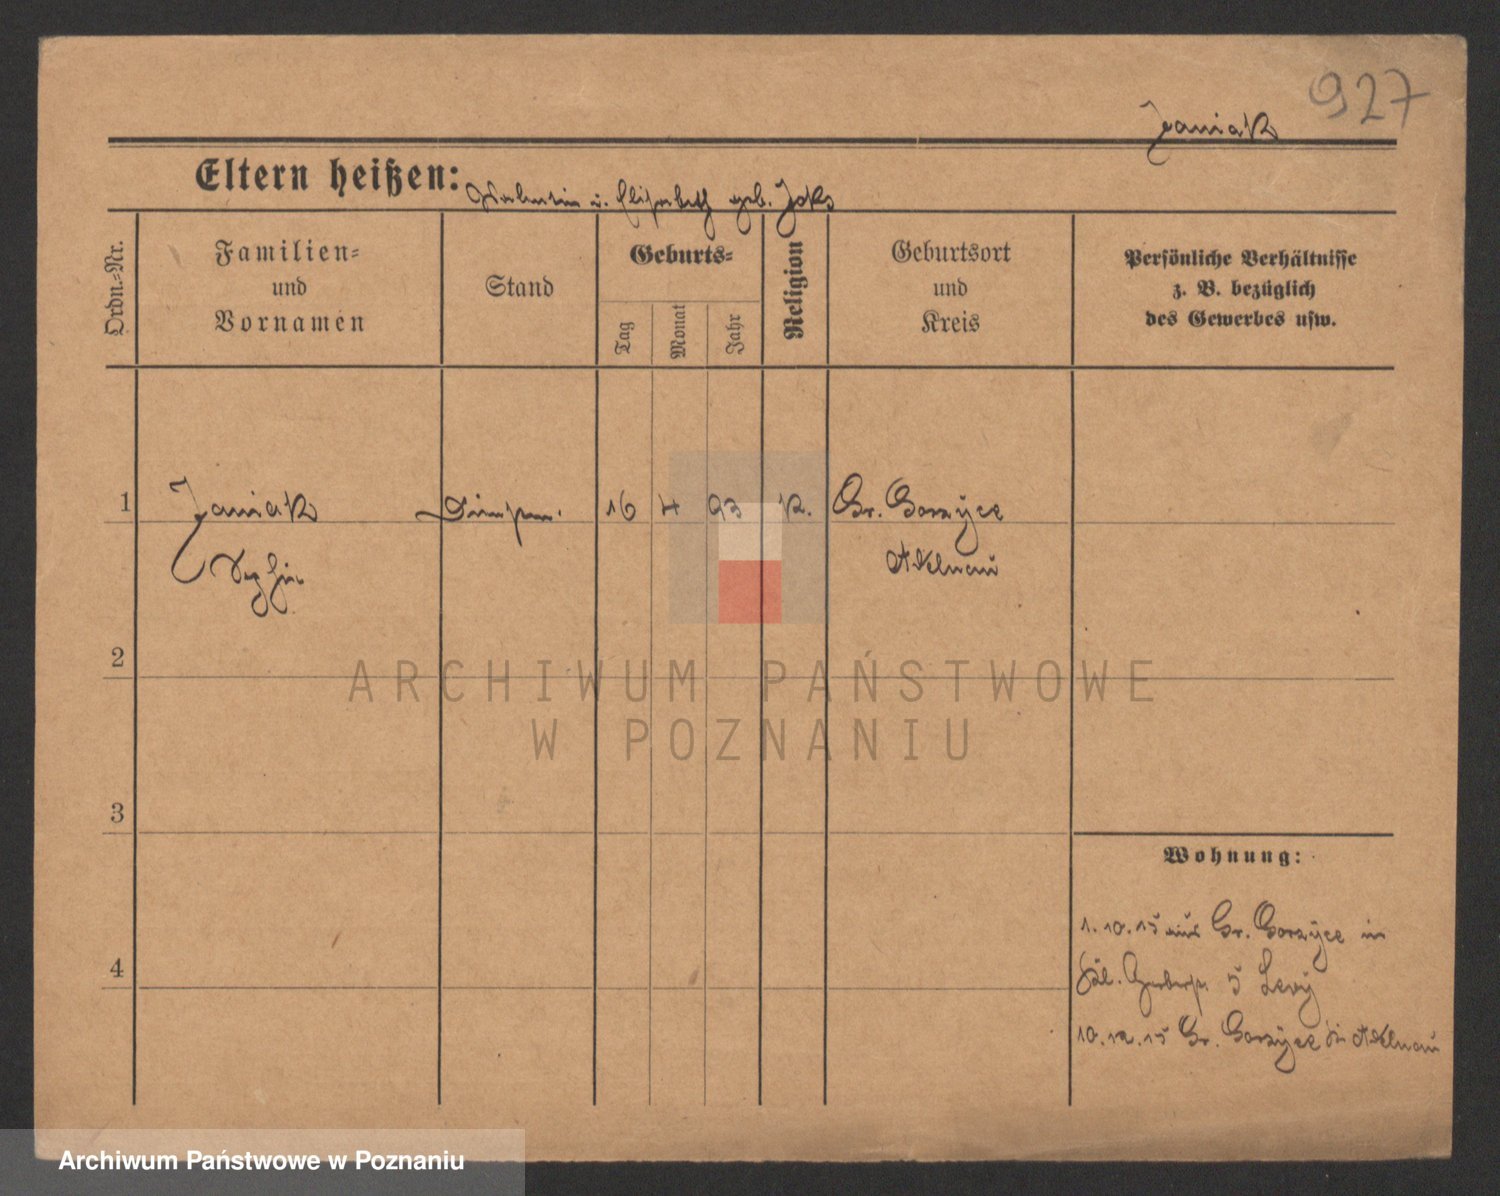 927
Janiak
Eltern heißen: Valentin u. Elisabeth geb. Joks
Ordn.-Nr.
Familien-
und
Vornamen
Stand
Geburts-
Tag
Monat
Jahr
Religion
Geburtsort
und
Kreis
Persönliche Verhältnisse
z. B. bezüglich
des Gewerbes usw.
1 Janiak 16 4 93 K. Gr. Gorzyce
Sophie Adelnau
2
3
4
Wohnung:
1.10.15 aus Gr. Gorzyce in
5 Levy
10.12.15 Gr. Gorzyce Adelnau
ARCHIWUM PAŃSTWOWE
W POZNANIU
Archiwum Państwowe w Poznaniu